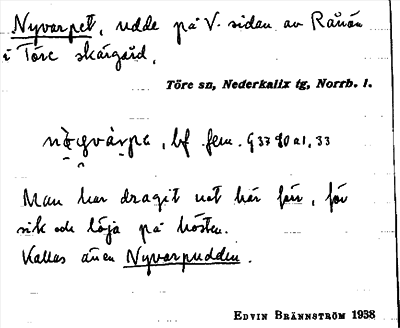 Nyvarpet, udde på V. sidan av Rånön
i Töre skärgård.
Töre sn, Nederkalix tg, Norrb. l.
bf. fem.
Man har dragit not här förr, för
sik och löja på hösten.
Kallas även Nyvarpudden.
EDVIN BRÄNNSTRÖM 1938